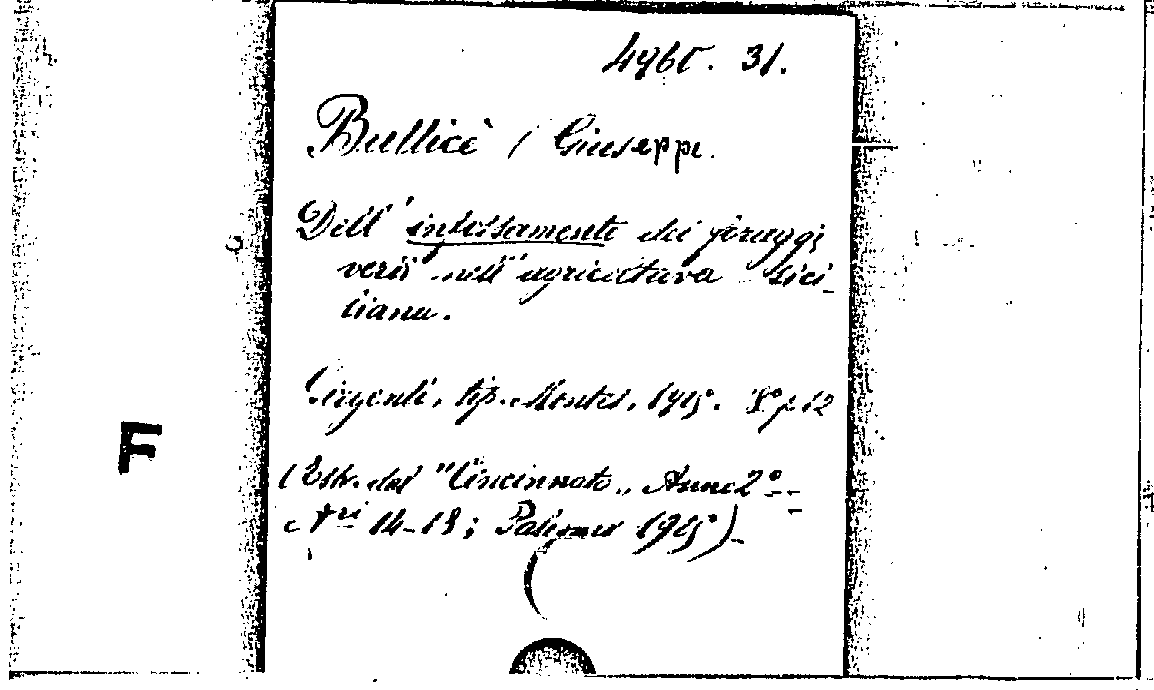 4965. 31.
Bullicè / Giuseppe.
Dell' infossamento dei foraggi
verdi nell' agricoltura Sici-
liana.
Girgenti, tip. Montes, 1915. 8° p. 12
(Estr. dal "Cincinnato„ Anno 2°--
Nri 14-18; Palermo 1915)-
F